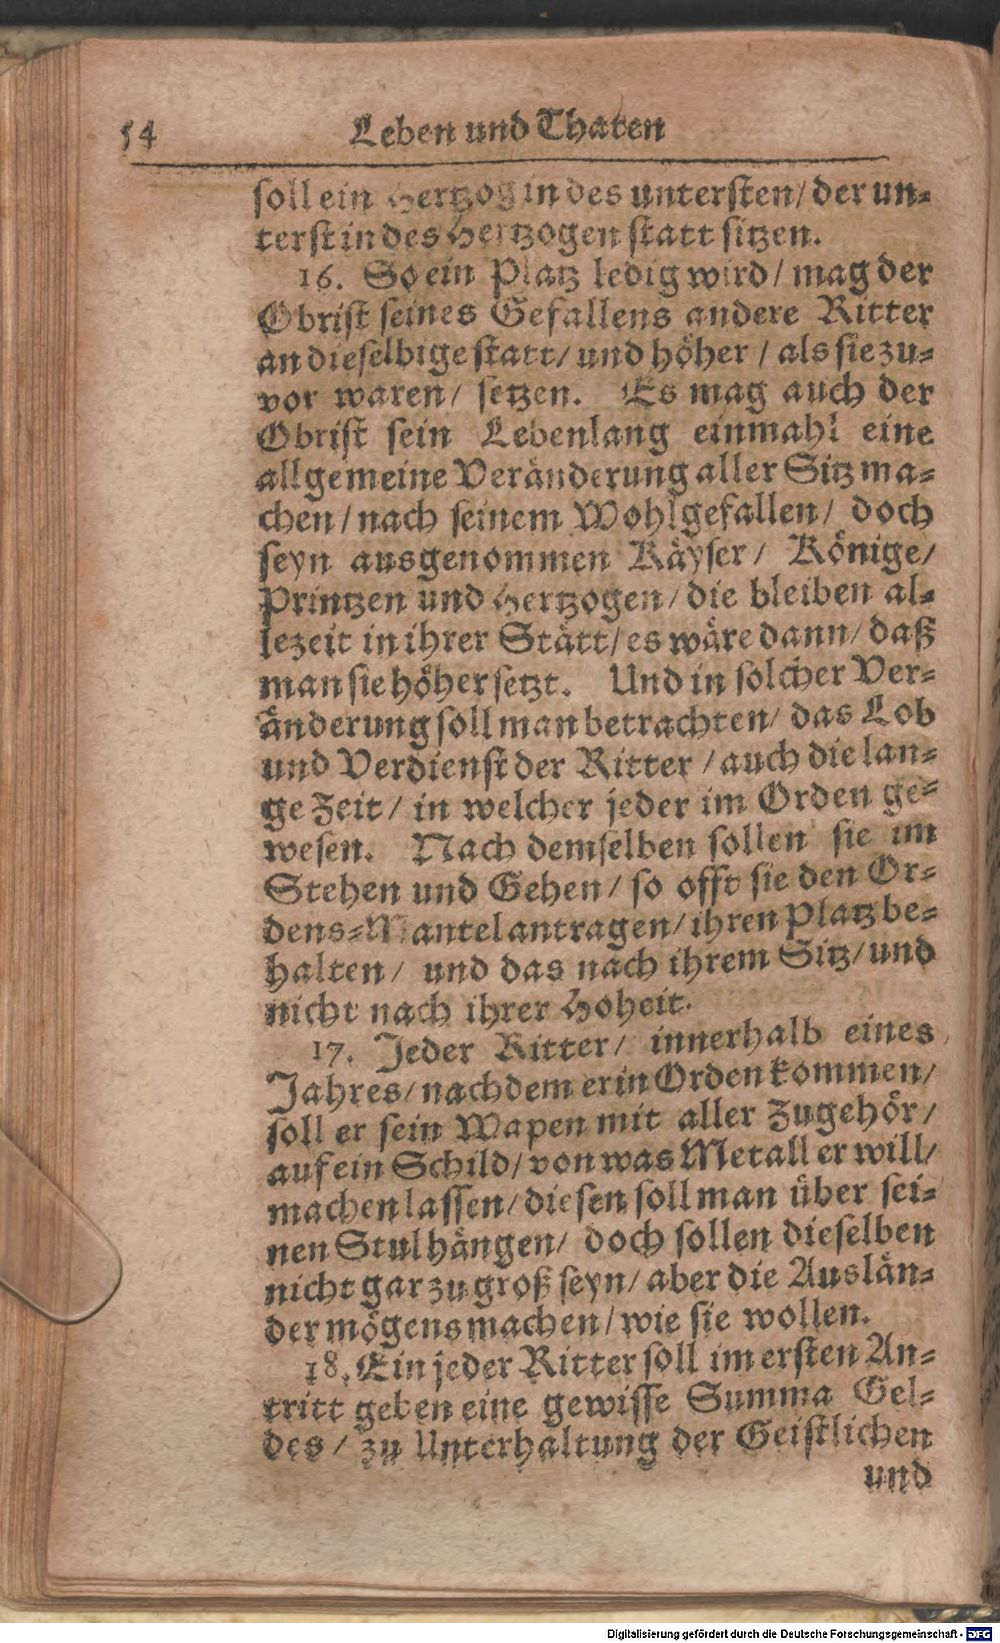 54 Leben und Thaten
soll ein Hertzog in des untersten/ der un-
terst in des Hertzogen statt sitzen.
16. So ein Platz ledig wird/ mag der
Obrist seines Gefallens andere Ritter
an dieselbige statt/ und höher/ als sie zu-
vor waren/ setzen. Es mag auch der
Obrist sein Lebenlang einmahl eine
allgemeine Veränderung aller Sitz ma-
chen/ nach seinem Wohlgefallen/ doch
seyn ausgenommen Käyser/ Könige/
Printzen und Hertzogen/ die bleiben al-
lezeit in ihrer Stätt/ es wäre dann/ daß
man sie höher setzt. Und in solcher Ver-
änderung soll man betrachten/ das Lob
und Verdienst der Ritter/ auch die lan-
ge Zeit/ in welcher jeder im Orden ge-
wesen. Nach demselben sollen sie im
Stehen und Gehen/ so offt sie den Or-
dens-Mantel antragen/ ihren Platz be-
halten/ und das nach ihrem Sitz/ und
nicht nach ihrer Hoheit.
17. Jeder Ritter/ innerhalb eines
Jahres/ nachdem er in Orden kommen/
soll er sein Wapen mit aller Zugehör/
auf ein Schild/ von was Metall er will/
machen lassen/ diesen soll man über sei-
nen Stul hängen/ doch sollen dieselben
nicht gar zu groß seyn/ aber die Auslän-
der mögens machen/ wie sie wollen.
18. Ein jeder Ritter soll im ersten An-
tritt geben eine gewisse Summa Gel-
des/ zu Unterhaltung der Geistlichen
und
Digitalisierung gefördert durch die Deutsche Forschungsgemeinschaft - DFG